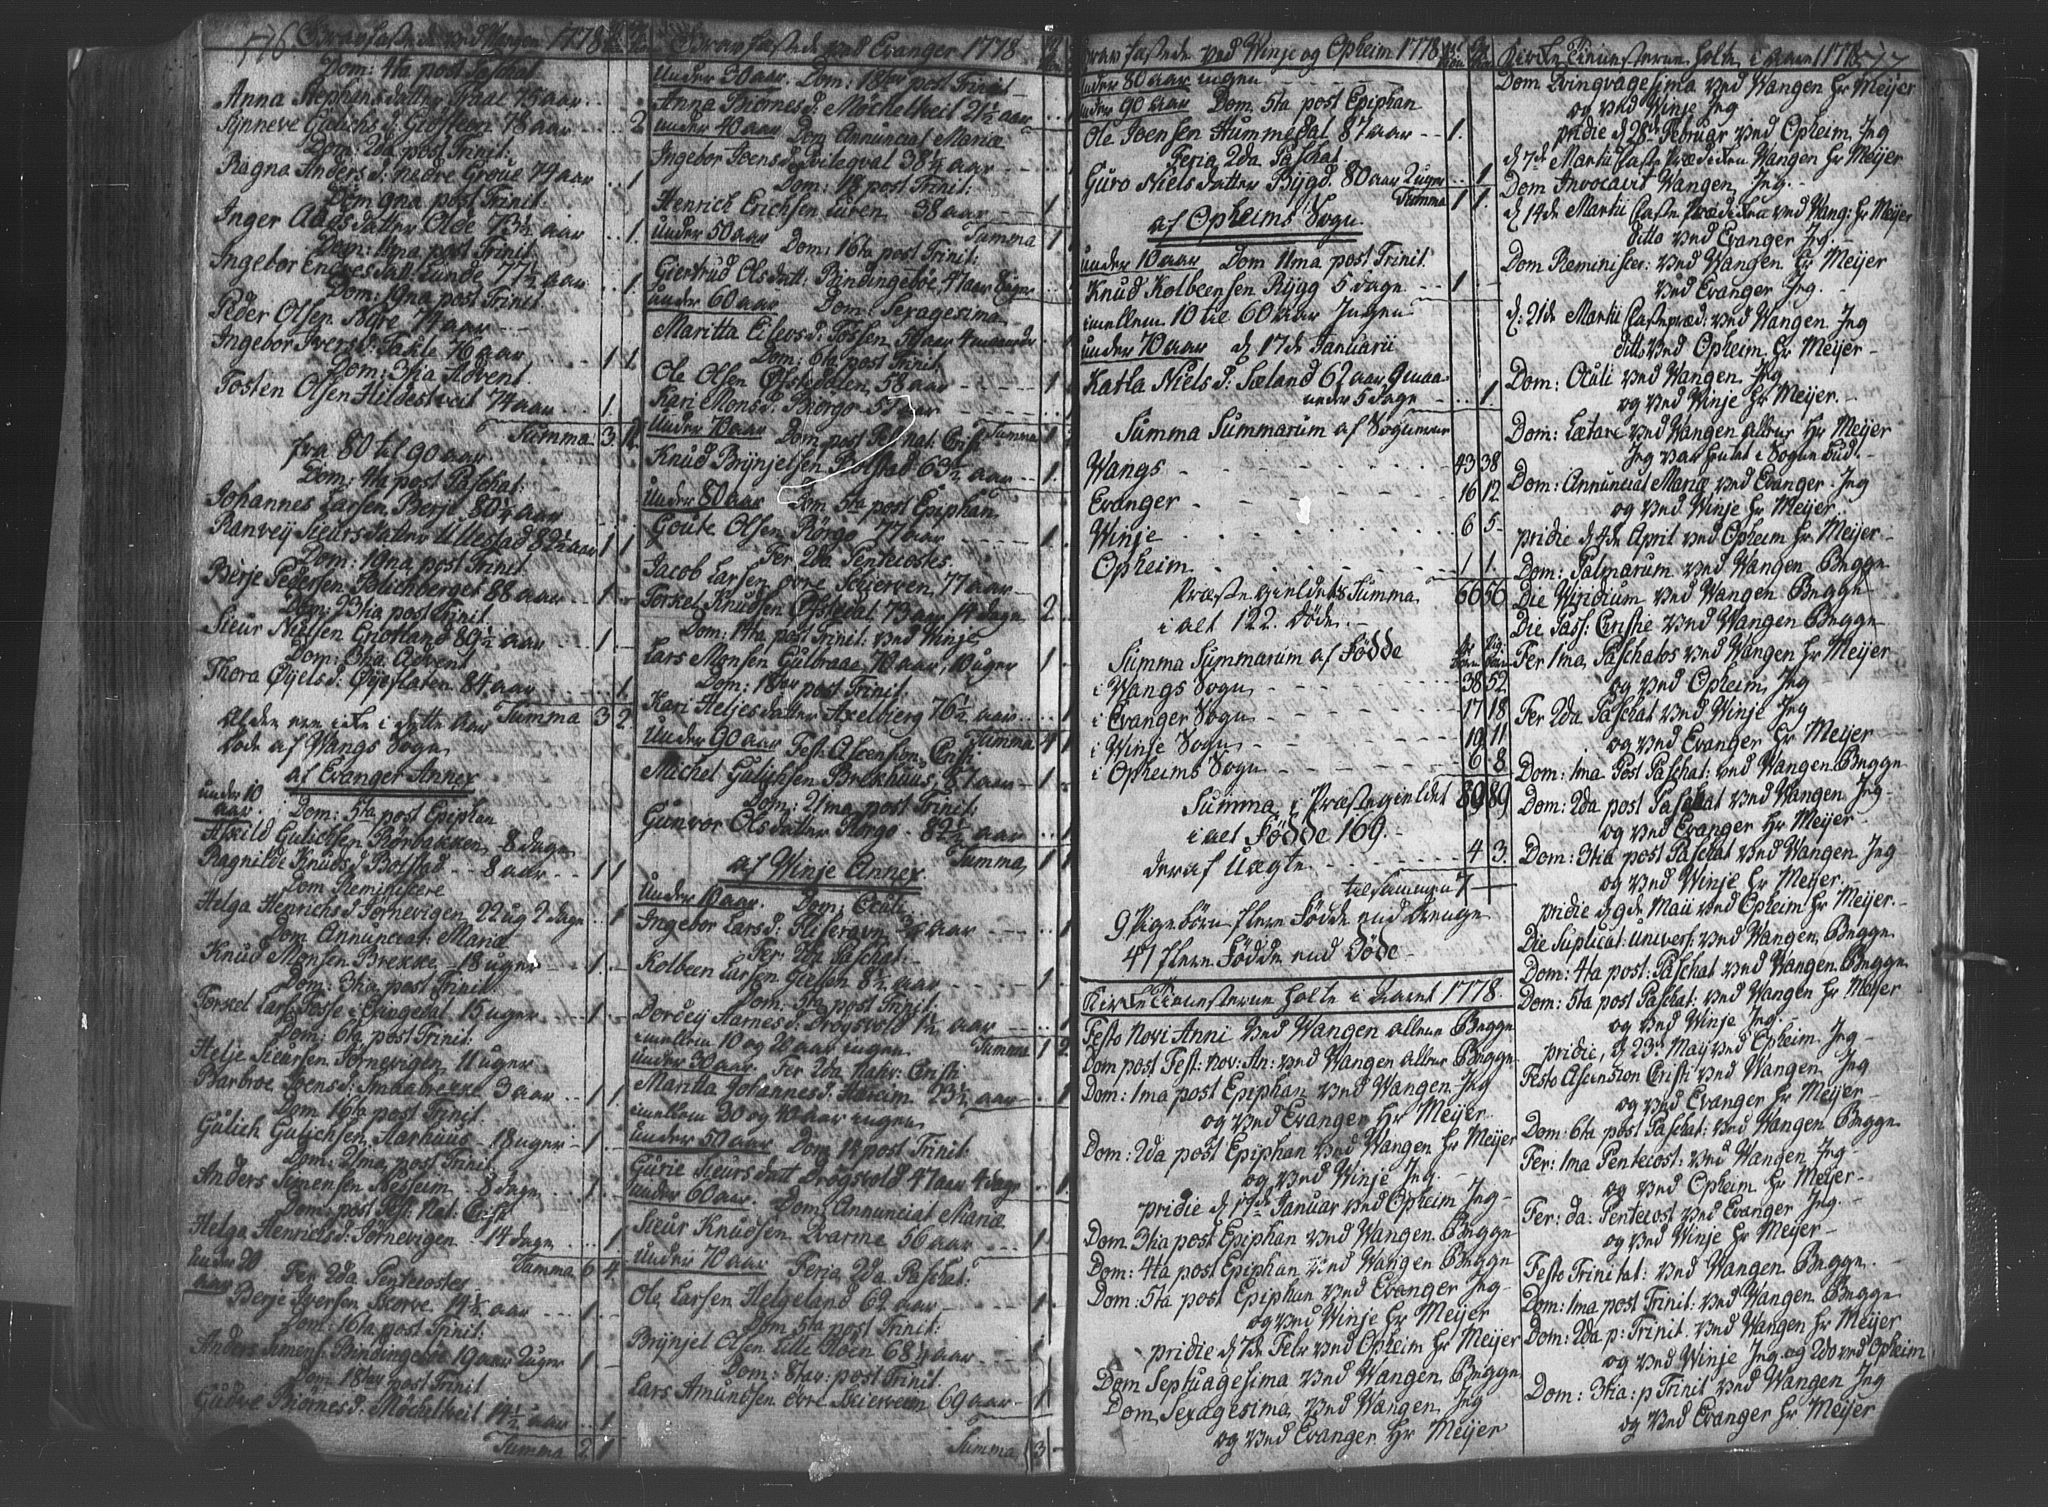 176 Gravfæstede ved Wangen 1778
Dom: 4ta post Paschat
Anna Stephensdatter Traae 75 aar
Synneve Gulichs d. Grosteen 78 aar .. 2
Dom: 2da post Trinit:
Ragna Anders d: nædre Groue 74 aar .. 1
Dom 9na post Trinit:
Inger Aadsdatter Olde 73½ aar .. 1.
Dom: 11ma post Trinit:
Ingebor Endresdatt: Lunde 77½ aar .. 1.
Dom: 19na post Trinit
Peder Olsen Øgre 74 aar
Ingebor Ivers d: Takle 76 aar 1 1.
Dom: 3tia Advent
Tosten Olsen Hildestveit 74 aar 1.
Summa 3 12
fra 80 til 90 aar
Dom: 4ta post Paschat:
Johannes Larsen Berje 80¼ aar
Ranvey Sieursdatter Ullestad 82½ aar 1 1
Dom: 19na post Trinit
Berje Pedersen Bolichberget 88 aar 1
Dom: 23tia post Trinit
Sieur Nielsen Grotland 89½ aar 1
Dom: 3tia Advent
Thora Øyels d: Øyeflaten 84 aar .. 1.
Summa 3 2
Ældre ere icke i dette aar
døde af Wangs Sogn
af Evanger Annex
under 10 aar. Dom: 5ta post Epiphan
Askild Gulichsen Rørbakken 8 dage
Ragnilde Knuds d Bolstad 8 aar 1 1
Dom Reminiscere
Helga Henrichs d Jørnevigen 22 ug 2 dage .. 1
Dom. Annunciat: Mariæ
Knud Monsen Brekke 18 uger 1.
Dom: 3tia post Trinit
Torkel Lars: Fosse i Exingedal 15 uger 1
Dom: 6ta post Trinit:
Helje Sieursen Jørnevigen 11 uger
Barbroe Joens d: Indabrekke 3 aar 1 1.
Dom 16ta post Trinit:
Gulich Gulichsen Aarhuus 18 uger 1
Dom: 21ma post Trinit
Anders Simensen Nesseim 8 dage 1.
Dom: post Fest: Nat: Cristi
Helga Henrichs d: Jørnevigen 14 dage .. 1
Summa 6 4.
under 20 aar Fer 2da Pentecostes
Berje Iversen Skorve 14½ aar 1.
Dom: 16ta post Trinit:
Anders Simens: Bindingebøe 19 aar 2 uger 1
Dom 18tav post Trinit
Gudve Biørnes d: Møchelteit 14½ aar .. 1
Summa 2 1
Gravfæstede ved Evanger 1778
under 30 aar. Dom: 18tav post Trinit
Anna Biørnes d. Møcheltveit 21½ aar .. 1
under 40 aar Dom Annunciat Mariæ
Ingebor Joens d Qvileqval 38½ aar .. 1
Dom: 18 post Trinit:
Henrich Erichsen Euren 38 aar 1
Summa 1
under 50 aar Dom: 16ta post Trinit:
Giertrud Olsdatt: Bindingebøe 47 aar 8 uger
under 60 aar Dom: Sexagesima
Maritta Eilevs d: Fossen 59 aar 4 maaneder
Dom: 6ta post Trinit
Ole Olsen Øfstedalen 58 aar 1
Kari Mons d: Biørgo 57 aar
Summa 1
under 70 aar Dom. post F. Nat. Crist
Knud Brynjelsen Bolstad 63½ aar 1.
under 80 aar Dom 5ta post Epiphan
Goute Olsen Rørgo 77 aar 1
Fer 2da Pentecostes
Jacob Larsen øvre Schierven 77 aar
Torkel Knudsen Øfstedal 73 aar 14 dage 2
Dom: 14ta post Trinit: ved Winje
Lars Monsen Gulbraae 70 aar 10 uger 1
Dom: 18tav post Trinit:
Kari Heljesdatter Axelberg 76½ aar .. 1
Summa 4 1
under 90 aar Fest. Ascension Cristi
Michel Gulichsen Brekhuus 87 aar 1
Dom: 21ma post Trinit:
Gunvor Olsdatter Rørgo 82½ aar .. 1
Summa 1 1
af Winje Annex
under 10 aar. Dom: Oculi
Ingebor Lars d: Fliseram ¾ aar .. 1
Fer: 2da Paschat:
Kolbeen Larsen Gielsen 8½ aar 1.
Dom: 5ta post Trinit:
Dordey Aarnes d. Drøgsvold 1½ aar .. 1
Summa 1 2
imellem 10 og 20 aar ingen
under 30 aar. Fer 2da Nativ: Cristi
Maritta Johannes d: Haueim 23½ aar .. 1
imellem 30 og 40 aar ingen
under 50 aar Dom 14 post Trinit:
Gurie Sieursdatt Drøgsvold 47 aar 4 dage .. 1.
under 60 aar. Dom: Annunciat Mariæ
Sieur Knudsen Qvarme 56 aar 1
under 70 aar Feria 2da Paschat:
Ole Larsen Helgeland 62 aar 1.
Dom 5ta post Trinit:
Brynjel Olsen Lille Aoen 68¼ aar 1
Dom: 8tav: post Trinit:
Lars Amundsen øvre Skierveen 69 aar 1
Summa 3
Gravfæstede ved Winje og Opheim 1778
under 80 aar ingen
under 90 aar Dom 5ta post Epiphan
Ole Joensen Hummedal 87 aar 1.
Feria 2da Paschat
Guro Nielsdatter Bygd 80 aar 2 uger .. 1
Summa 1 1.
af Opheims Sogn
under 10 aar Dom 11ma post Trinit
Knud Kolbeensen Rygg 5 dage 1
imellem 10 til 60 aar Ingen
under 70 aar d 17de Januarii
Katla Niels d: Sæland 62 aar 9 maa
neder 5 dage .. 1
Summa Summarum af Sognene
Wangs 43 38
Evanger 16 12
Winje 6 5
Opheim 1 1.
Præstegieldets Summa 66 56
i alt 122. Døde.
Summa Summarum af Fødde
i Wangs Sogn 38 52
i Evanger Sogn 17 18
i Winje Sogn 19 11
i Opheims Sogn 6 8
Summa i Præstegieldet 89 89
i alt Fødde 169.
deraf Uægte 4 3.
tilsammen 7
9 Pigebørn flere Fødde end Drenge
47 flere Fødde end Døde
Kirke Tienesterne holte i Aaret 1778.
Festo Novi Anni ved Wangen allene Begge
Dom post Fest: nov: An: ved Wangen allene Begge
Dom: 1ma post Epiphan ved Wangen Jeg
og ved Evanger Hr Meijer
Dom: 2da post Epiphan ved Wangen Hr Meijer
og ved Winje Jeg.
pridie d 17de Januar ved Opheim Jeg
Dom 3tia post Epiphan ved Wangen Begge
Dom: 4ta post Epiphan ved Wangen Begge
Dom: 5ta post Epiphan ved Evanger Jeg
og ved Winje Hr Meijer
pridie d 7de Febr ved Opheim Hr Meijer
Dom Septuagesima ved Wangen Begge
Dom. Sexagesima ved Wangen Jeg
og ved Evanger Hr Meijer
Kirke Tienesterne holte i Aaret 1778 177
Dom Qvinqvagesima ved Wangen Hr Meijer
og ved Winje Jeg
pridie d 28de Februar ved Opheim Jeg
d 7de Martii Fastepræd: ved Wangen Hr Meijer
Dom Invocavit Wangen Jeg.
d 14de Martii Faste Præd: ved Wang: Hr Meijer
ditto ved Evanger Jeg.
Dom Reminiscer: ved Wangen Hr Meijer
ved Evanger Jeg.
d: 21de Martii Fastepræd: ved Wangen Jeg
ditto ved Opheim Hr Meijer
Dom: Oculi ved Wangen Jeg
og ved Winje Hr Meijer.
Dom: Lætare ved Wangen allene Hr Meijer
Jeg var hentet i Sognebud.
Dom: Annunciat Mariæ ved Evanger Jeg
og ved Winje Hr Meijer.
pridie d 4de April ved Opheim Hr Meijer.
Dom: Palmarum ved Wangen Begge
Die Viridium ved Wangen Begge
Die Pass: Cristie ved Wangen Begge
Fer 1ma Paschatos ved Wangen Hr Meijer
og ved Opheim Jeg
Fer 2da Paschat ved Winje Jeg
og ved Evanger Hr Meijer
Dom: 1ma Post Paschat: ved Wangen Begge
Dom: 2da post Paschat ved Wangen Jeg
og ved Evanger Hr Meijer
Dom: 3tia post Paschat ved Wangen Jeg
og ved Winje Hr Meijer.
pridie d 9de Maii ved Opheim Hr Meijer.
Die Suplicat: univers: ved Wangen Begge
Dom: 4ta post: Paschat ved Wangen Begge
Dom: 5ta post Paschat: ved Wangen Hr Meijer
og ved Winje Jeg
pridie, d 23: Maij ved Opheim Jeg
Festo Ascension Cristi ved Wangen Jeg
og ved Evanger Hr Meijer
Dom: 6ta post Paschat: ved Wangen Begge
Fer: 1ma Pentecost: ved Wangen Jeg
og ved Opheim Hr Meijer
Fer: da: Pentecost ved Evanger Jeg
og ved Winje Hr Meijer
Festo Trinitat: ved Wangen Begge
Dom: 1ma post Trinit: ved Wangen Begge
Dom: 2da p: Trinit. ved Wangen Hr Meijer
og ved Winje Jeg og 2do ved Opheim
Dom: 3tia: p Trinit ved Wangen Jeg
og ved Evanger Hr Meijer